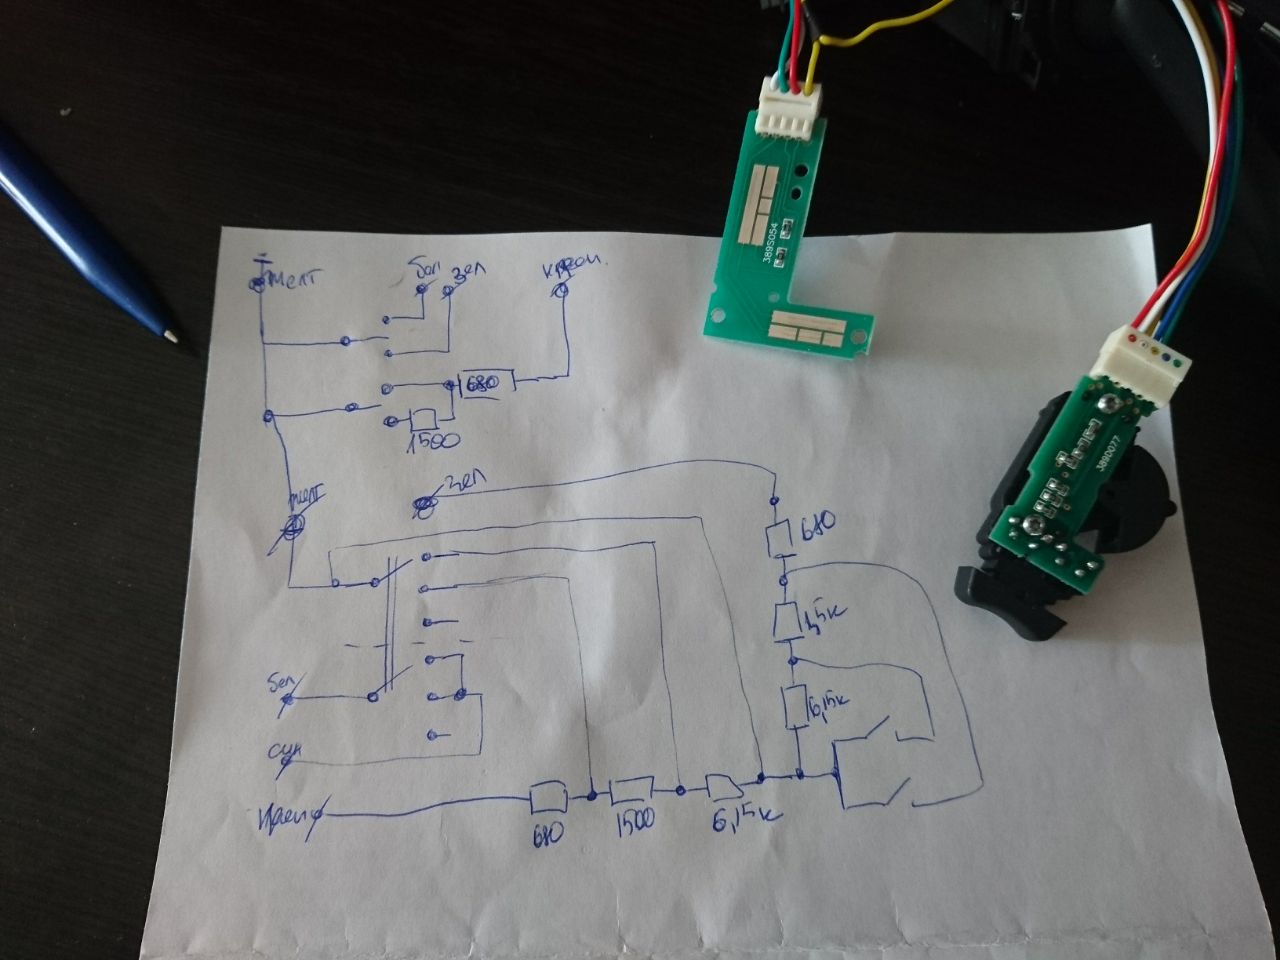 желт
бел
зел
красн.
680
1500
желт
зел
680
1,5к
6,15к
бел
син
красн
680
1500
6,15к
389S054
389D077